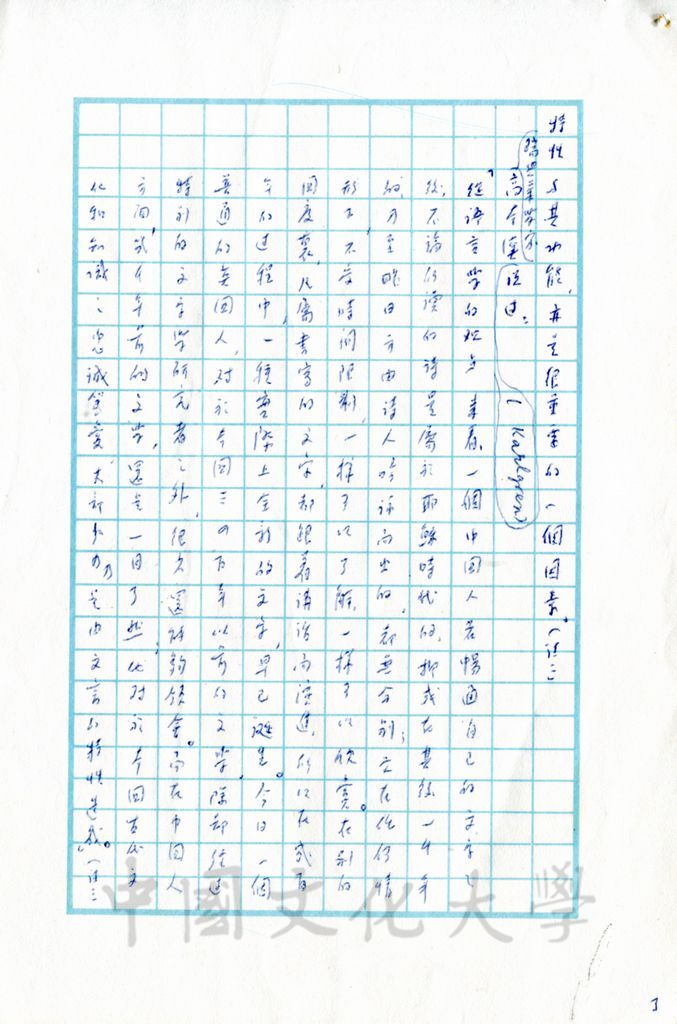 特性與其功能，亦是很重要的一個因素。（註二）
瑞典漢學家
高本漢（Karlgren）說過：
「從語言學的觀點來看，一個中國人若暢通自己的文字之
後，不論所讀的詩是屬於耶穌時代的，抑或在其後一千年
的，乃至昨日方由詩人吟詠而出的，都無分別；它在任何情
形下，不受時間限制，一樣可以了解，一樣可以欣賞。在別的
國度裏，凡屬書寫的文字，都跟着講話而演進，所以在或百
年的過程中，一種實際上全新的文字，早已誕生。今日一個
普通的英國人，對於本國三四百年以前的文學，除卻經過
特別的文字學研究者之外，很少還能夠領會。而在中國人
方面，幾千年前的文學，還是一目了然；他對於本國古代文
化和知識之忠誠篤愛，大部分乃是由文言的特性造成。」（註三
中國文化大學